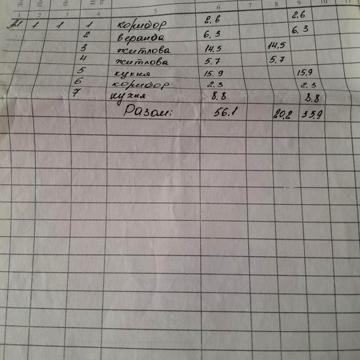 1 2 3 4 5 6 7 8 9 10 11
1 1 1 коридор 2,6 2,6
2 веранда 6,3 6,3
3 житлова 14,5 14,5
4 житлова 5,7 5,7
5 кухня 15,9 15,9
6 коридор 2,3 2,3
7 кухня 8,8 8,8
Разом: 56.1 20,2 35,9